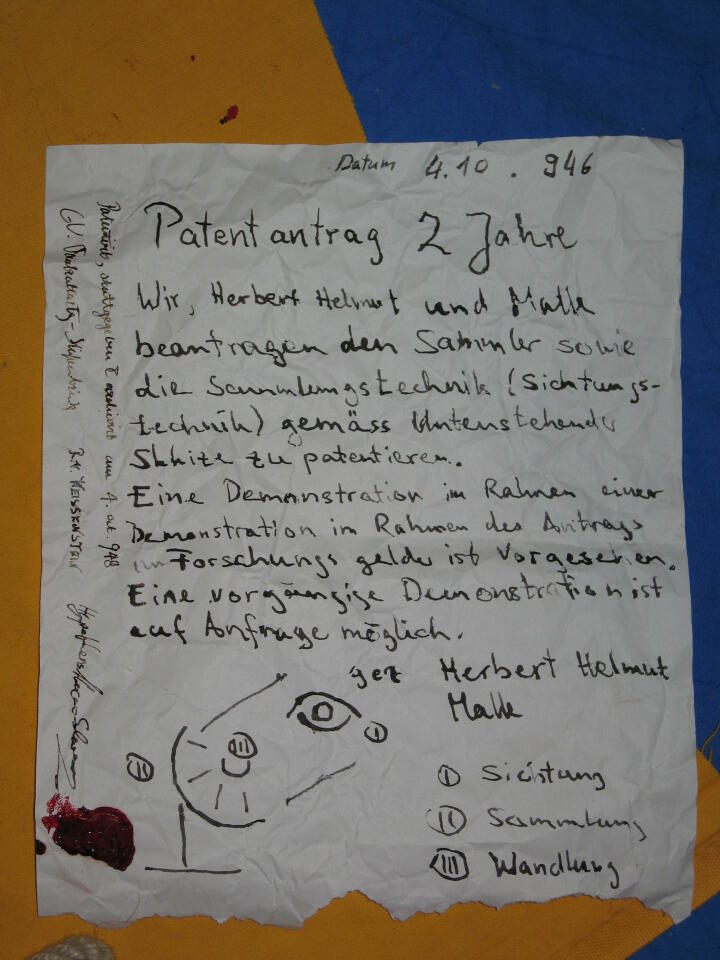 Datum 4.10.946
Patentantrag 2 Jahre
Wir, Herbert Helmut und Malle
beantragen den Sammler sowie
die Sammlungstechnik (Sichtungs-
technik) gemäss Untenstehender
Skkize zu patentieren.
Eine Demonstration im Rahmen einer
Demonstration im Rahmen des Antrags
um Forschungsgelder ist vorgesehen.
Eine vorgängige Demonstration ist
auf Anfrage möglich.
gez Herbert Helmut
Malle
I Sichtung
II Sammlung
III Wandlung
I
II
III
stattgegeben am 4. oct. 948
R.H. WEISSKNSTEIN